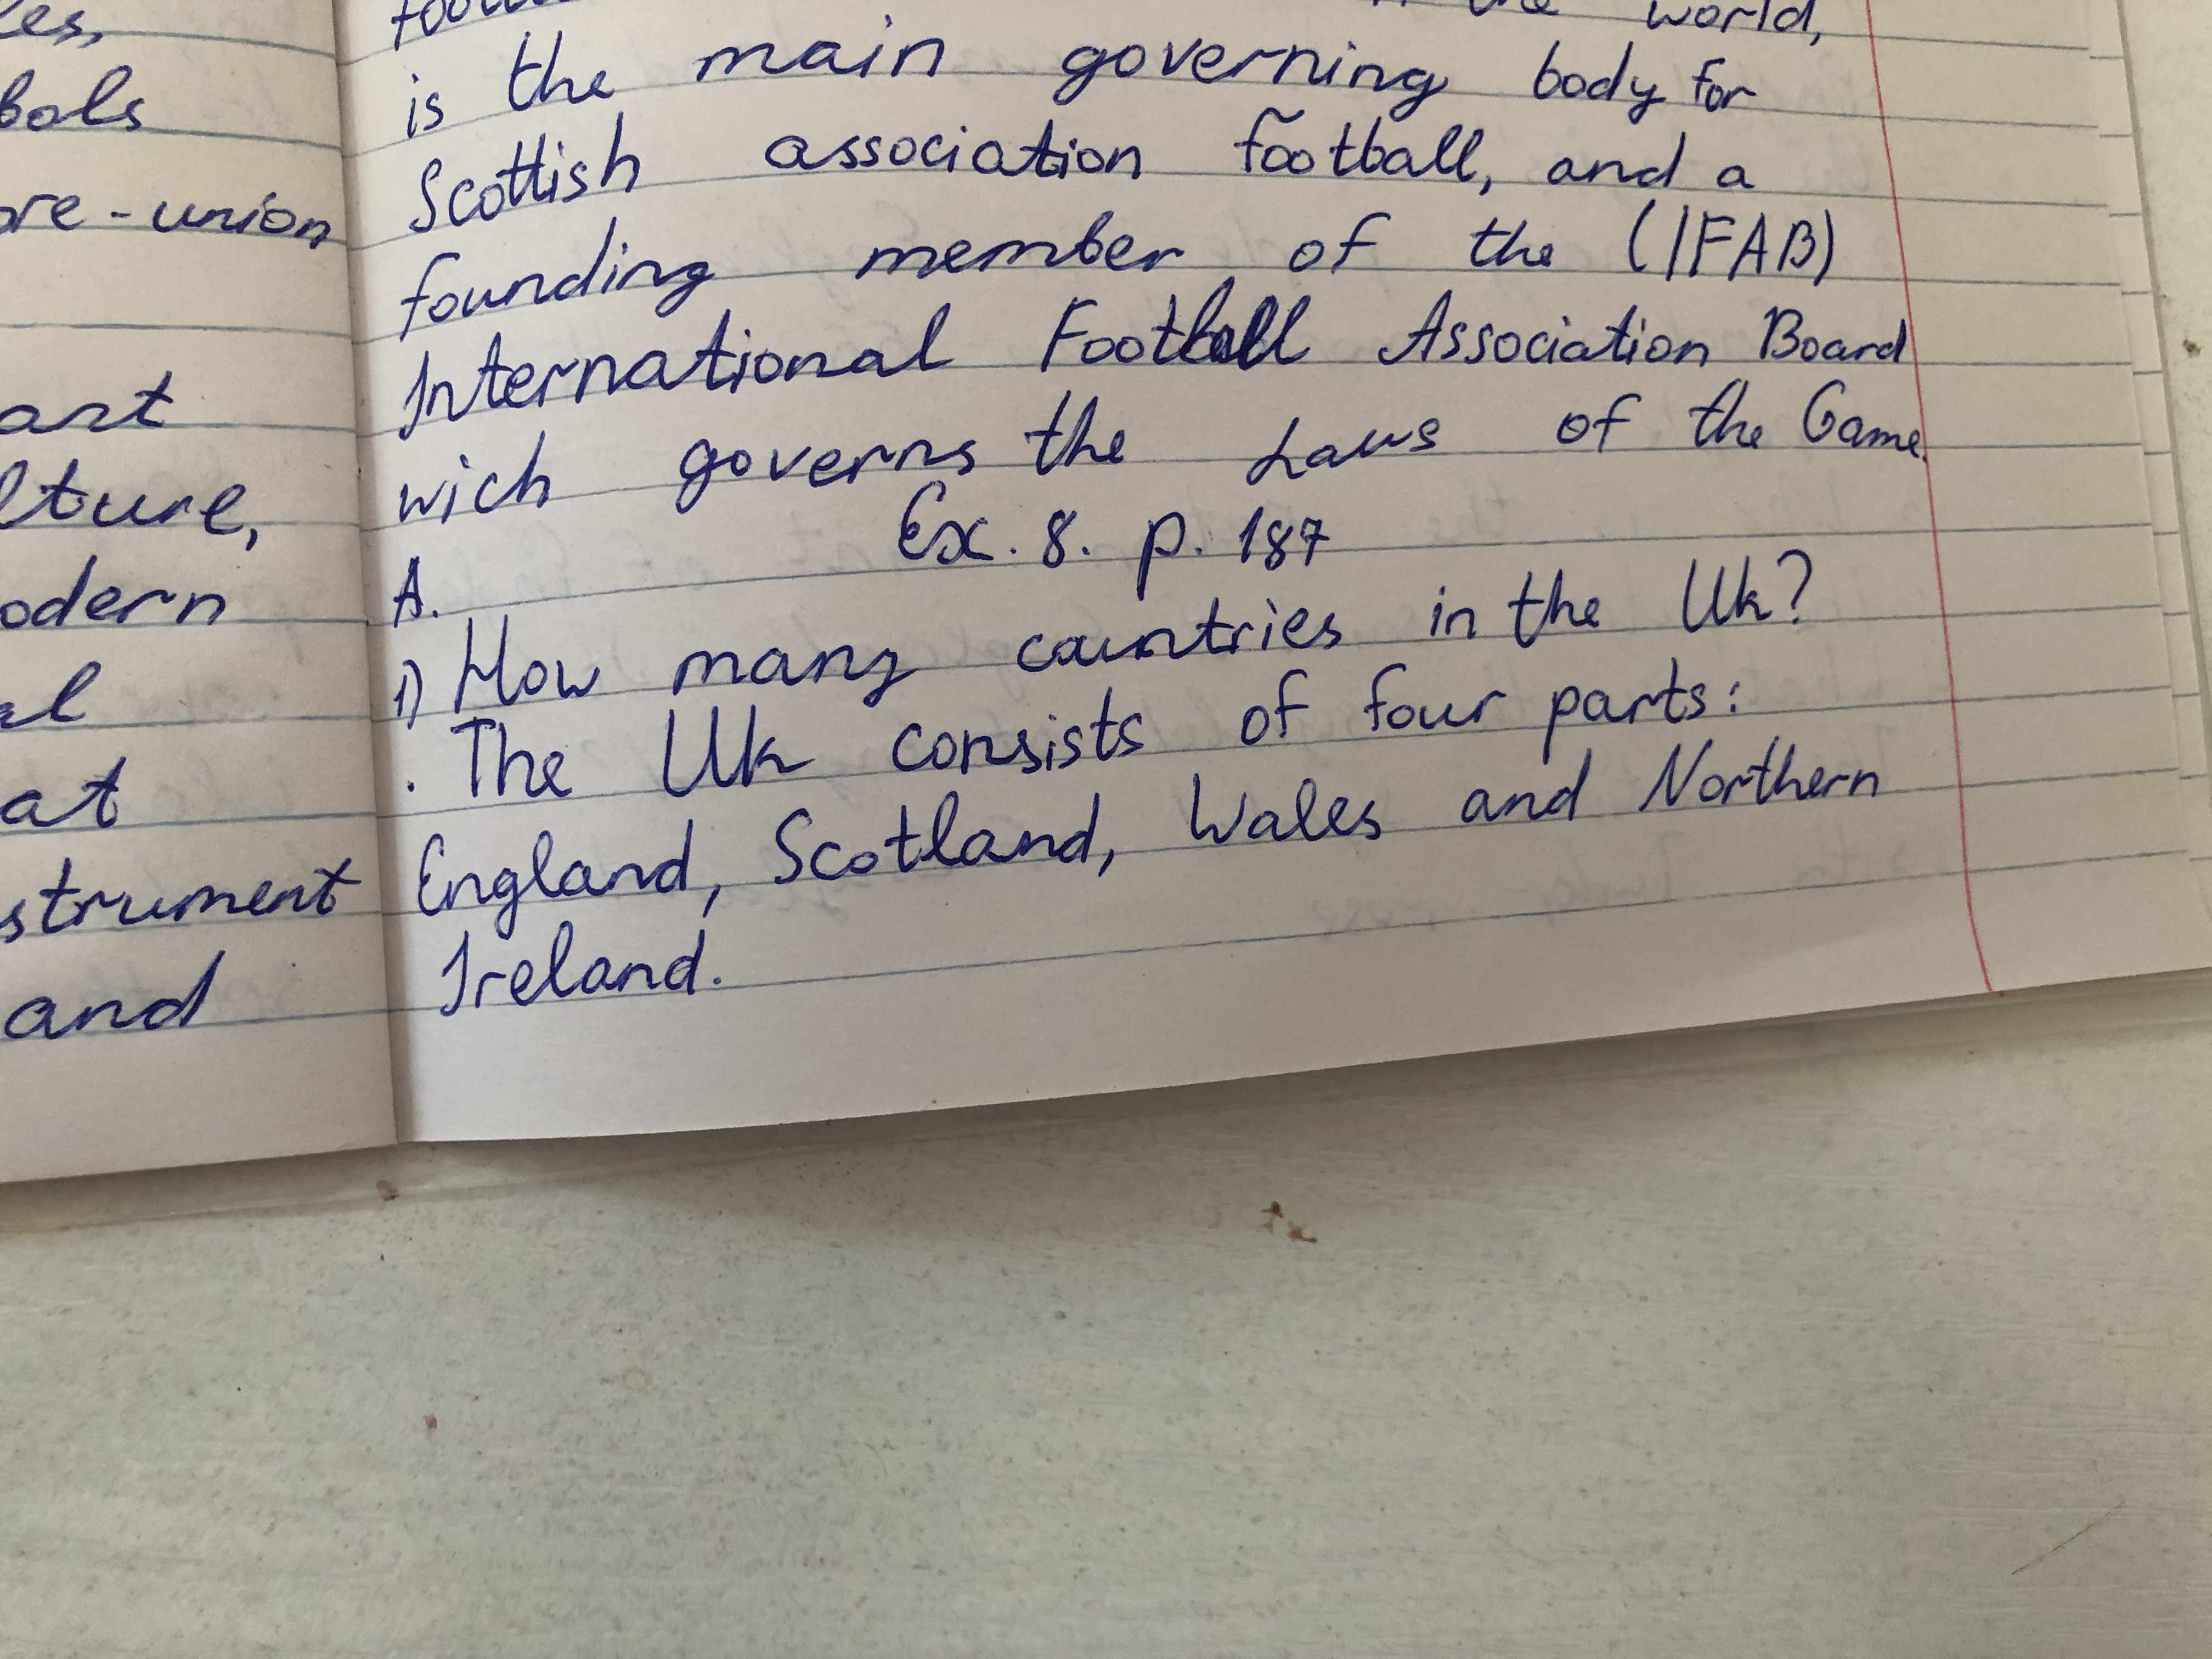 les,
bols
pre-union
art
lture,
odern
al
at
strument
and
the world,
is the main governing body for
Scottish association football, and a
founding member of the (IFAB)
International Football Association Board
wich governs the Laws of the Game.
Ex. 8. p. 187
A.
1) How many countries in the Uk?
. The Uk consists of four parts:
England, Scotland, Wales and Northern
Ireland.